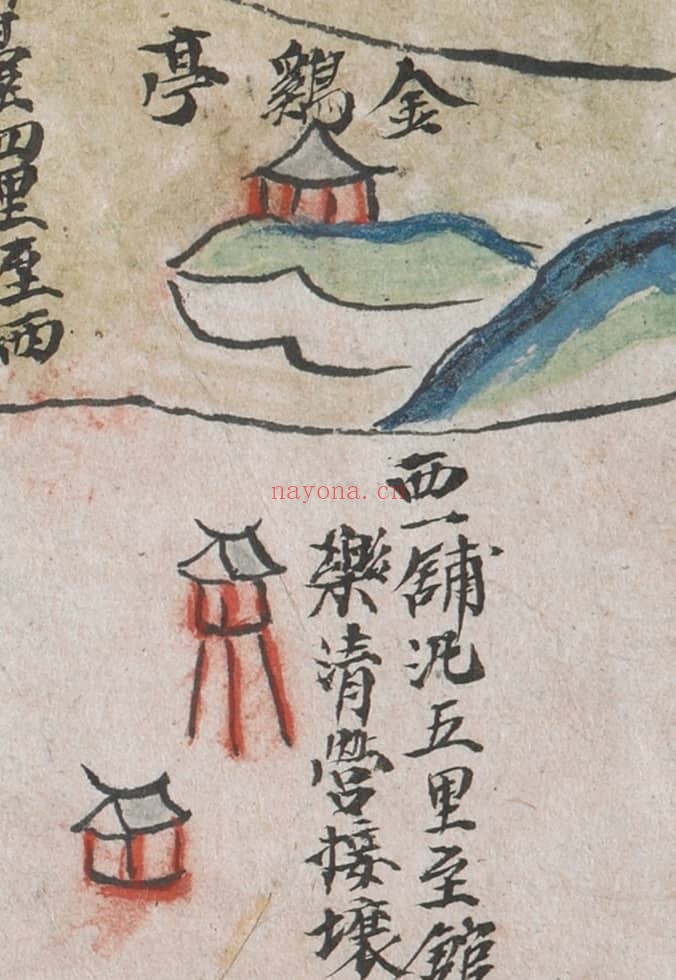 金鷄亭
四里至西
西一舖汛五里至館
樂清營接壤
nayona.cn